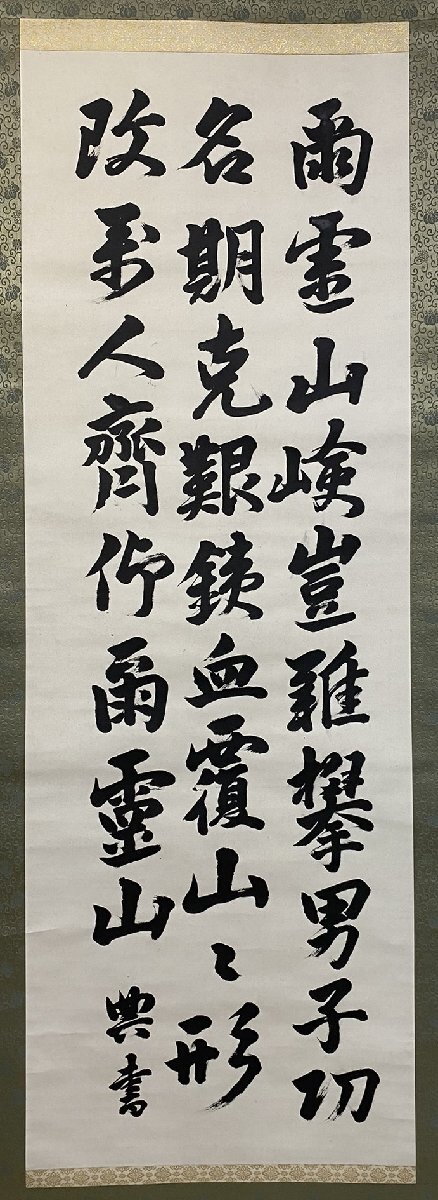 爾霊山嶮豈難攀男子功
名期克艱銕血覆山〻形
改万人齊仰爾靈山
典書